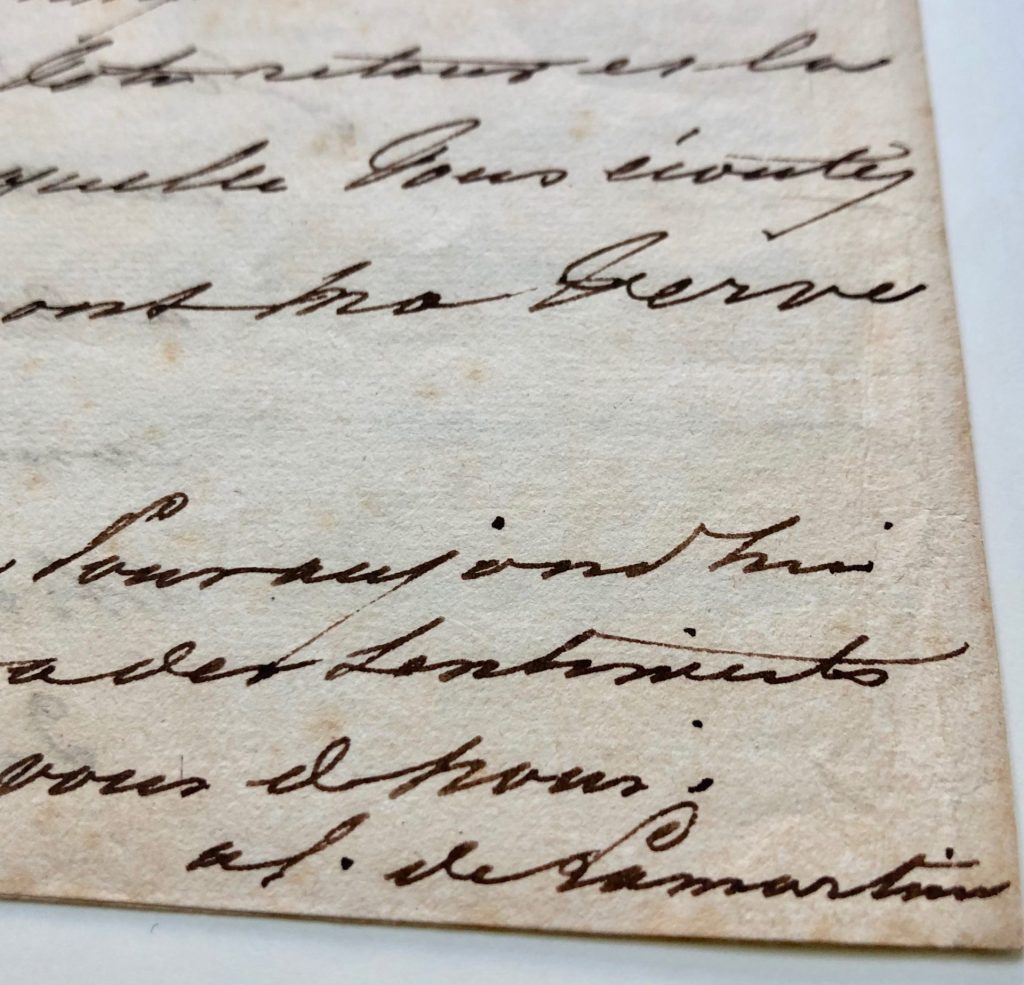 retour et la
quelle Vous écoutez
ont ma Verve
Pour aujourd'hui
a des sentiments
vous d nous.
al. de Lamartine